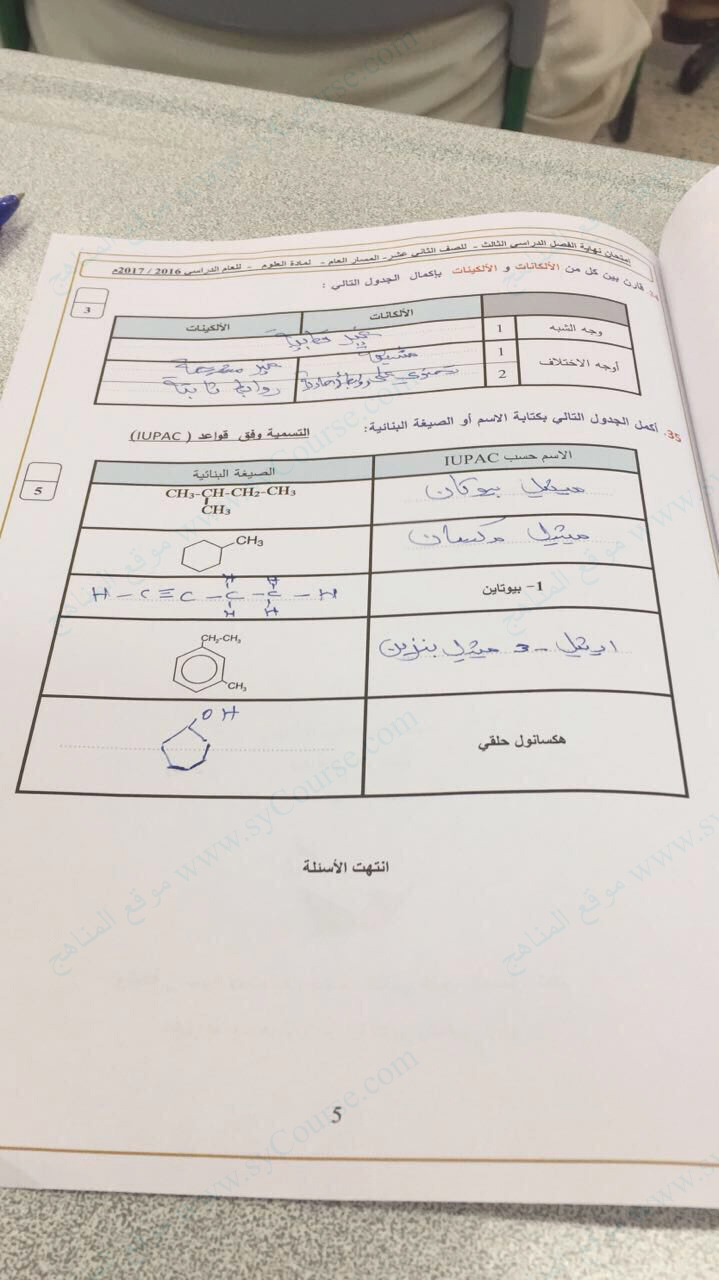 امتحان نهاية الفصل الدراسي الثالث - للصف الثاني عشر- المسار العام - لمادة العلوم - للعام الدراسي 2016 / 2017م
34. قارن بين كل من الألكانات و الألكينات بإكمال الجدول التالي :
3
الألكانات الألكينات
وجه الشبه 1 غير قطبية
أوجه الاختلاف 1 مشبعة غير مشبعة
2 تحتوي على روابط أحادية روابط
35. أكمل الجدول التالي بكتابة الاسم أو الصيغة البنائية: التسمية وفق قواعد ( IUPAC)
5
الاسم حسب IUPAC الصيغة البنائية
ميثيل بيوتان CH₃-CH-CH₂-CH₃
CH₃
ميثيل هكسان CH₃
1- بيوتاين H - C ≡ C - C - C - H
H H
H H
ايثيل - 3 ميثيل بنزين CH₂-CH₃
CH₃
هكسانول حلقي OH
انتهت الأسئلة
5
موقع المناهج www.syCourse.com